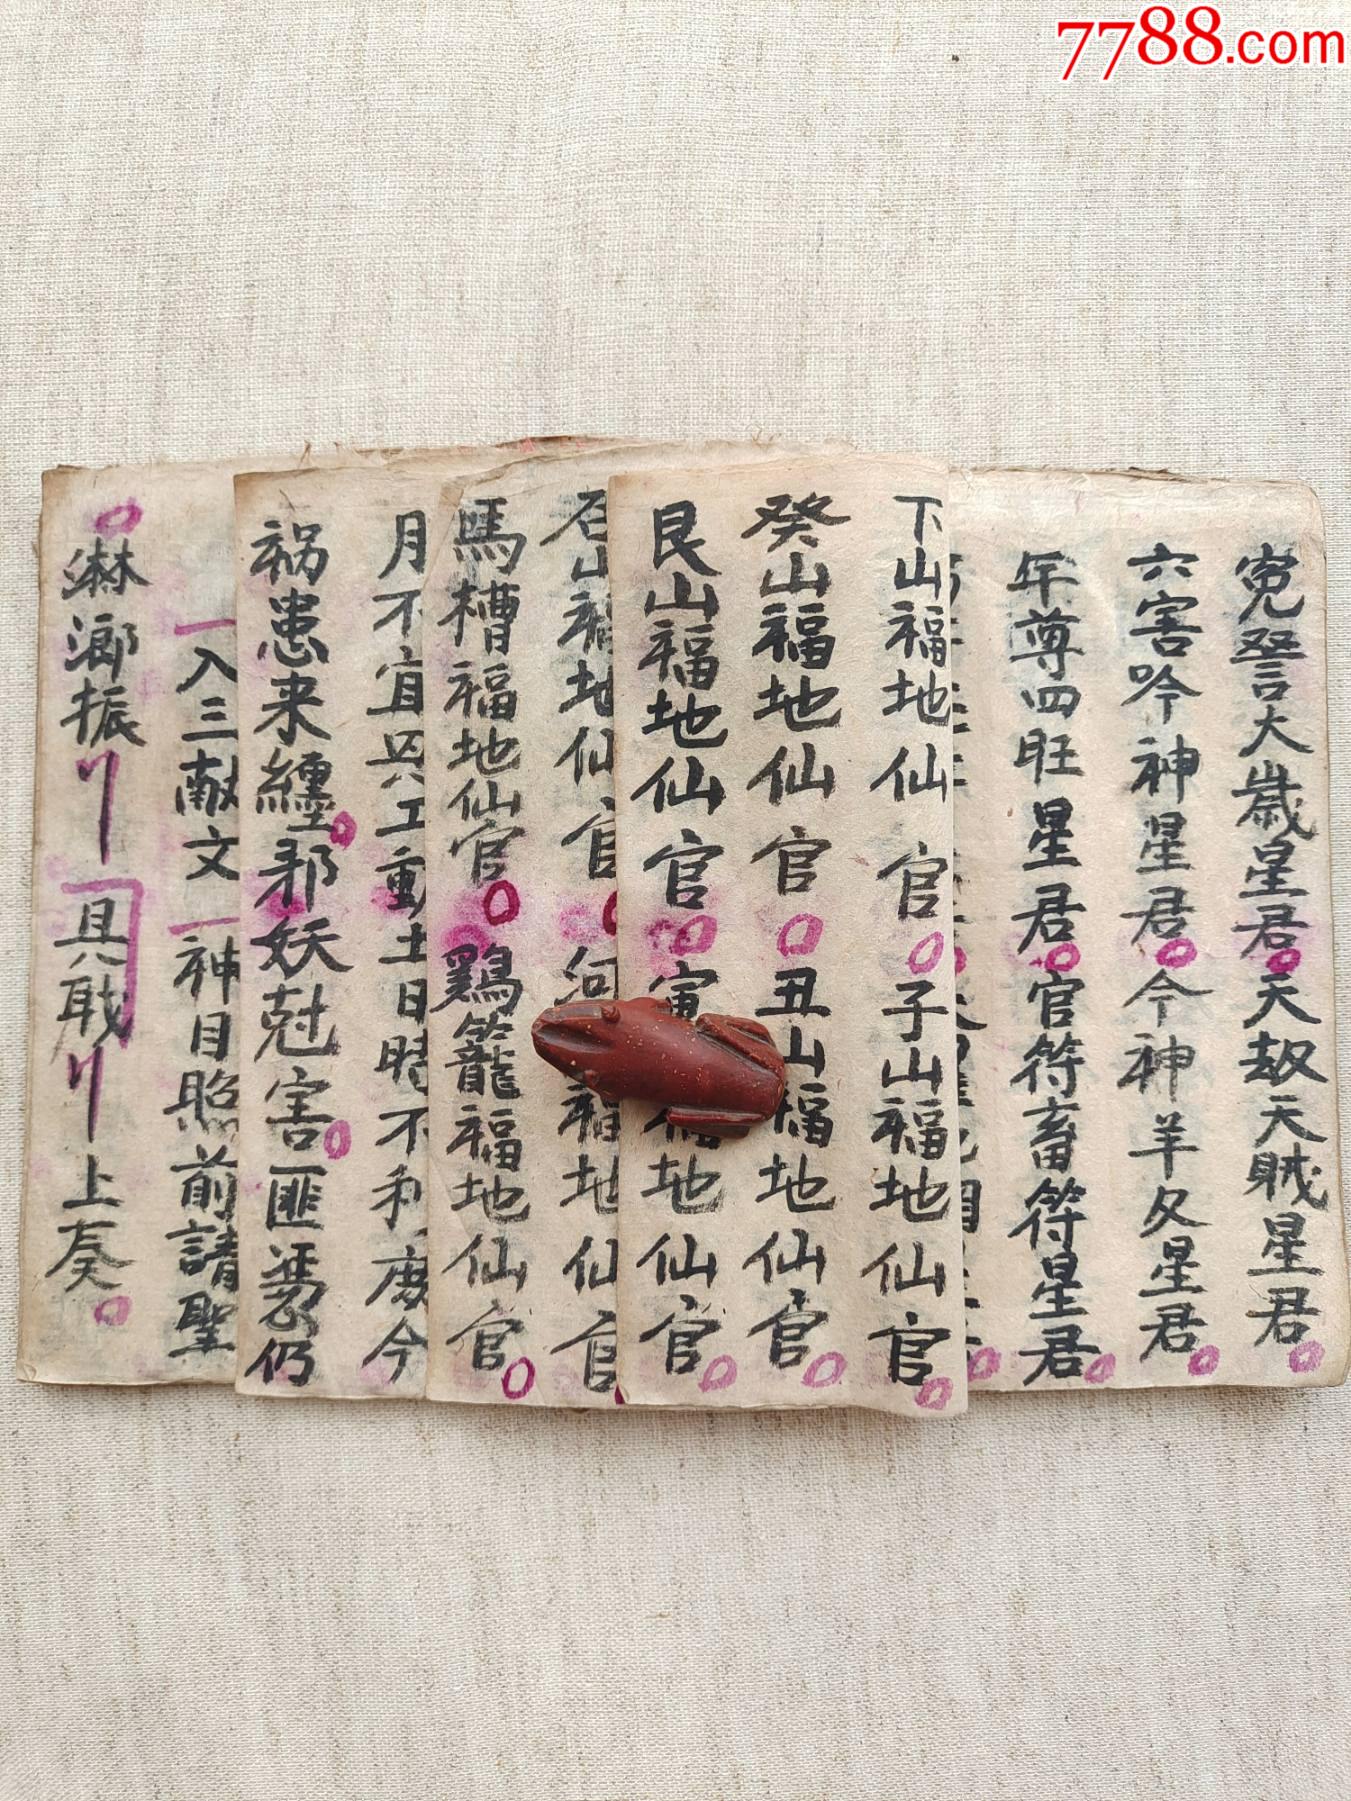 7788.com
寃詧大歲星君天劫天賊星君
六害吟神星君令神羊夂星君
年尊四旺星君官符畜符星君
下山福地仙官子山福地仙官
癸山福地仙官丑山福地仙官
艮山福地仙官寅福地仙官
石山福地仙官河福地仙官
馬槽福地仙官鷄籠福地仙官
月不宜兴工動土日時不利
今
祸患来纏邪妖尅害匪
仍
一入三献文一神目照前請聖
淋瑯振
具
上奏